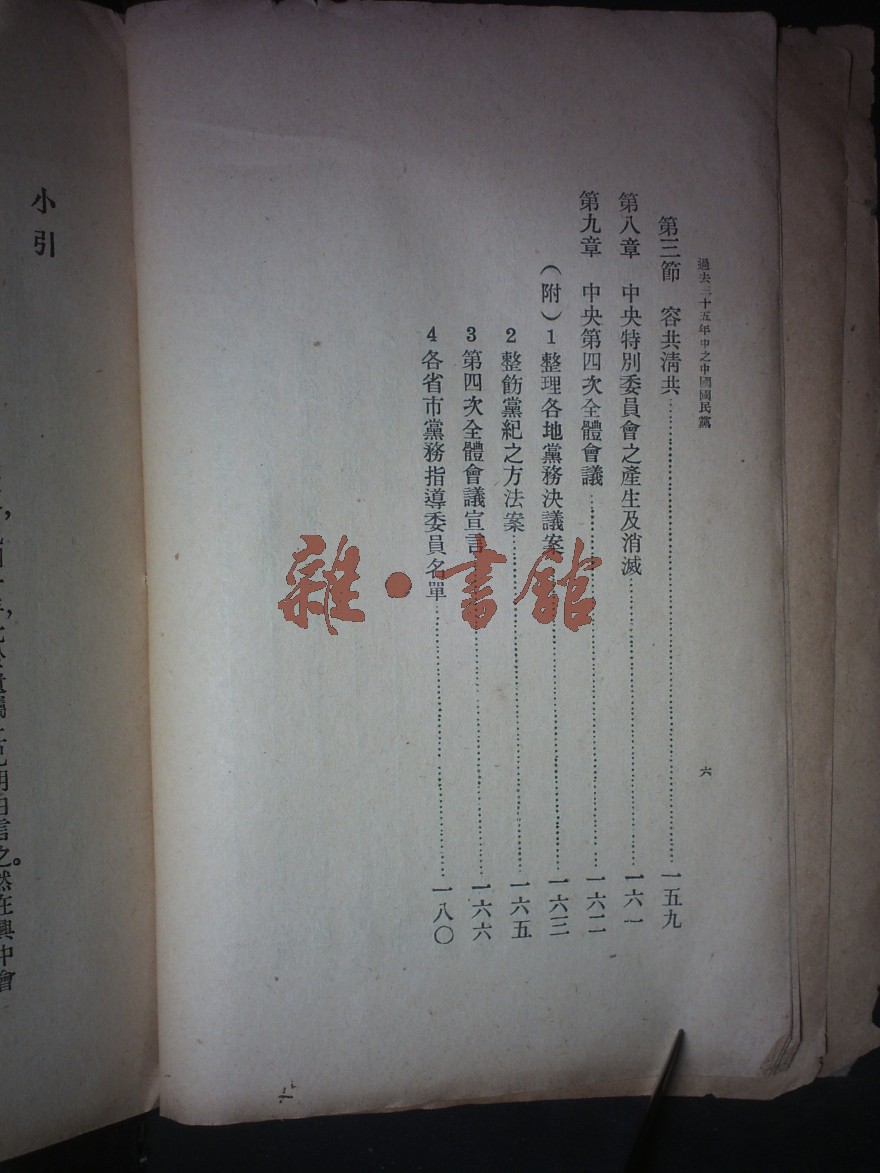 過去三十五年中之中國國民黨
六
第三節 容共清共……一五九
第八章 中央特別委員會之產生及消滅……一六一
第九章 中央第四次全體會議……一六二
(附)1 整理各地黨務決議案……一六三
2 整飭黨紀之方法案……一六五
3 第四次全體會議宣言……一六六
4 各省市黨務指導委員名單……一八〇
雜·書館
小引
然在興中會